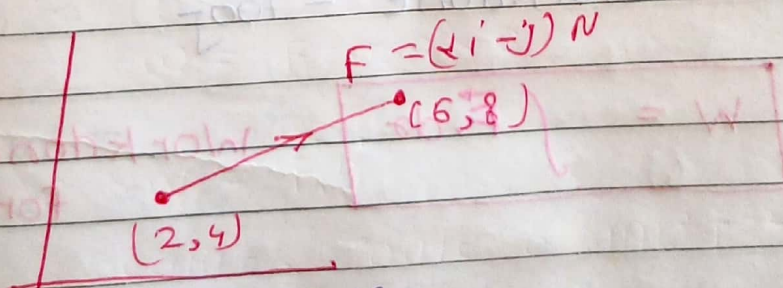 F = (2i - j) N
(6,8)
(2,4)